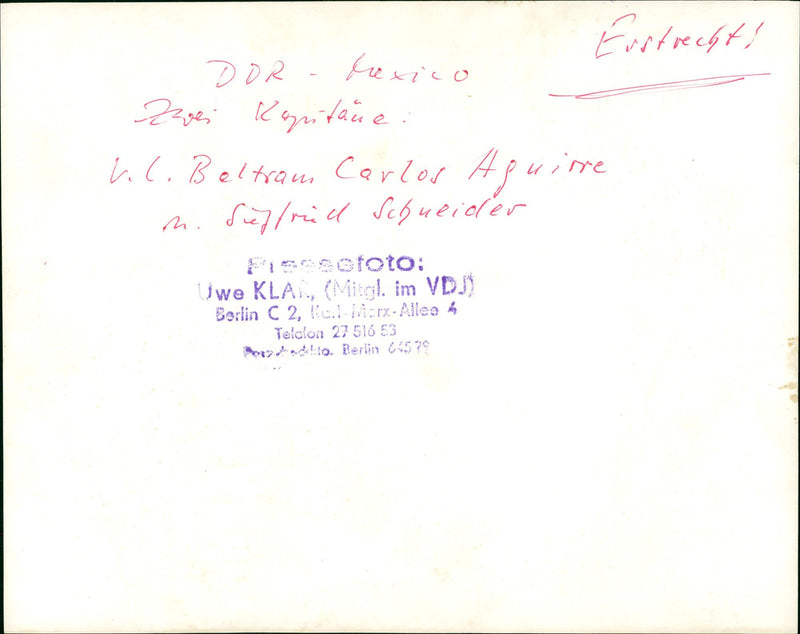 Erstrecht!
DDR - Mexico
Zwei Kapitäne:
V.l. Beltram Carlos Aguirre
u. Siegfried Schneider
Pressefoto:
Uwe KLAR, (Mitgl. im VDJ)
Berlin C 2, Karl-Marx-Allee 4
Telefon 27 516 53
Berlin 64579